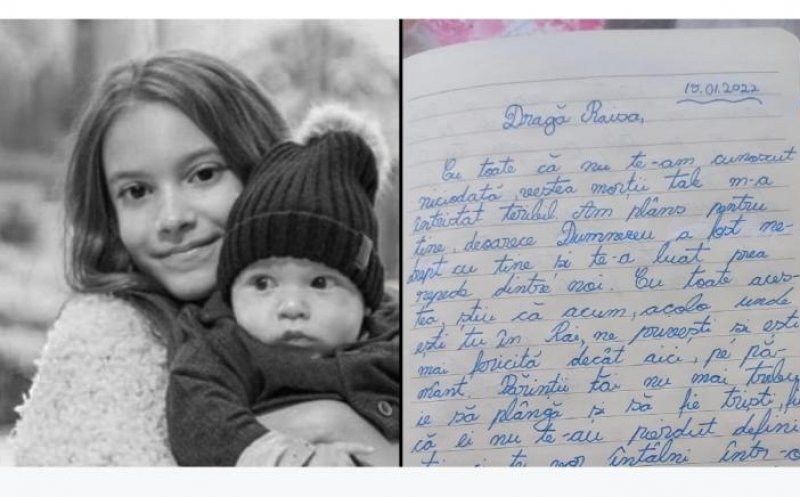 15.01.2022
Dragă Raisa,
Cu toate că nu te-am cunoscut
niciodată, vestea morții tale m-a
întristat teribil. Am plâns pentru
tine, deoarece Dumnezeu a fost ne-
drept cu tine și te-a luat prea
repede dintre noi. Cu toate aces-
tea știu că acum, acolo unde
ești tu în Rai, ne privești și ești
mai fericită decât aici, pe pă-
mânt. Părinții tăi nu mai trebu
ie să plângă și să fie triști,
că ei nu te-au pierdut defini
și te vor întâlni într-o